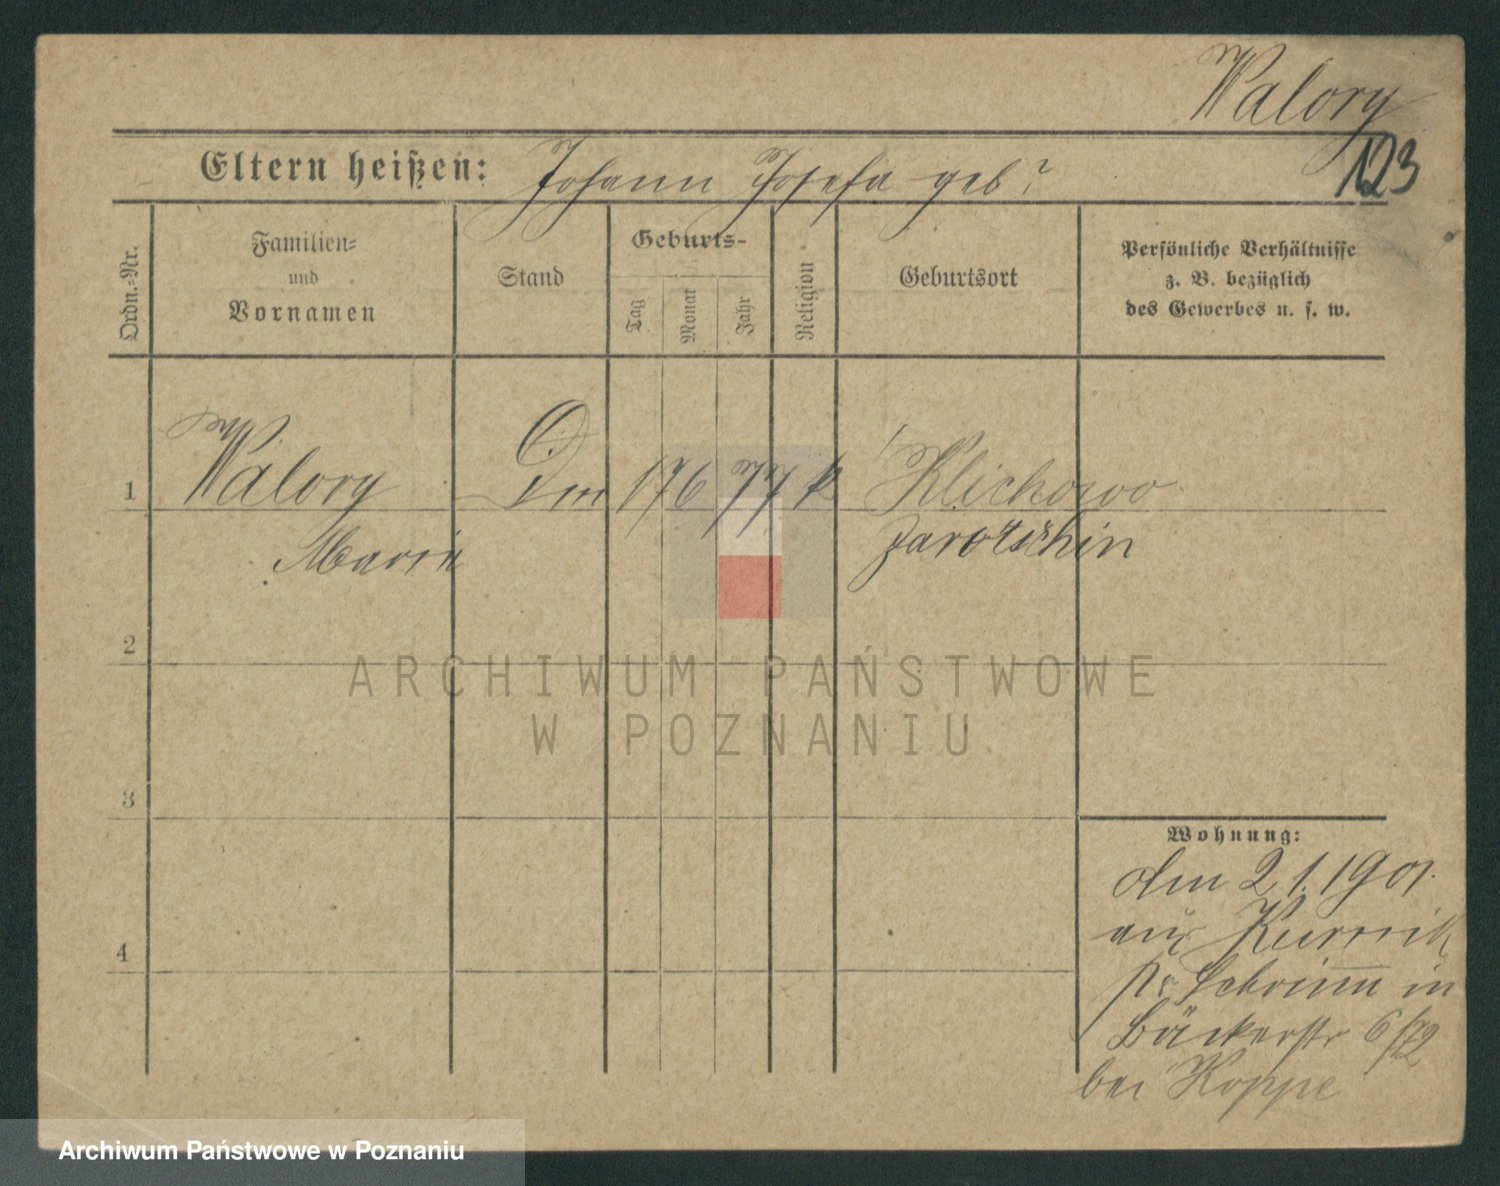 Walory
123
Eltern heißen: Johann Josefa geb?
Ordn.-Nr.
Familien-
und
Vornamen
Stand
Geburts-
Tag
Monat
Jahr
Religion
Geburtsort
Persönliche Verhältnisse
z. B. bezüglich
des Gewerbes u. s. w.
1 Walory 17 6 77 k Klichowo
Marie Jarotschin
2
3
4
Wohnung:
den 2 1. 1901.
aus Kurnik
Kr Schrimm in
Bäckerstr
bei Koppe
ARCHIWUM PAŃSTWOWE
W POZNANIU
Archiwum Państwowe w Poznaniu